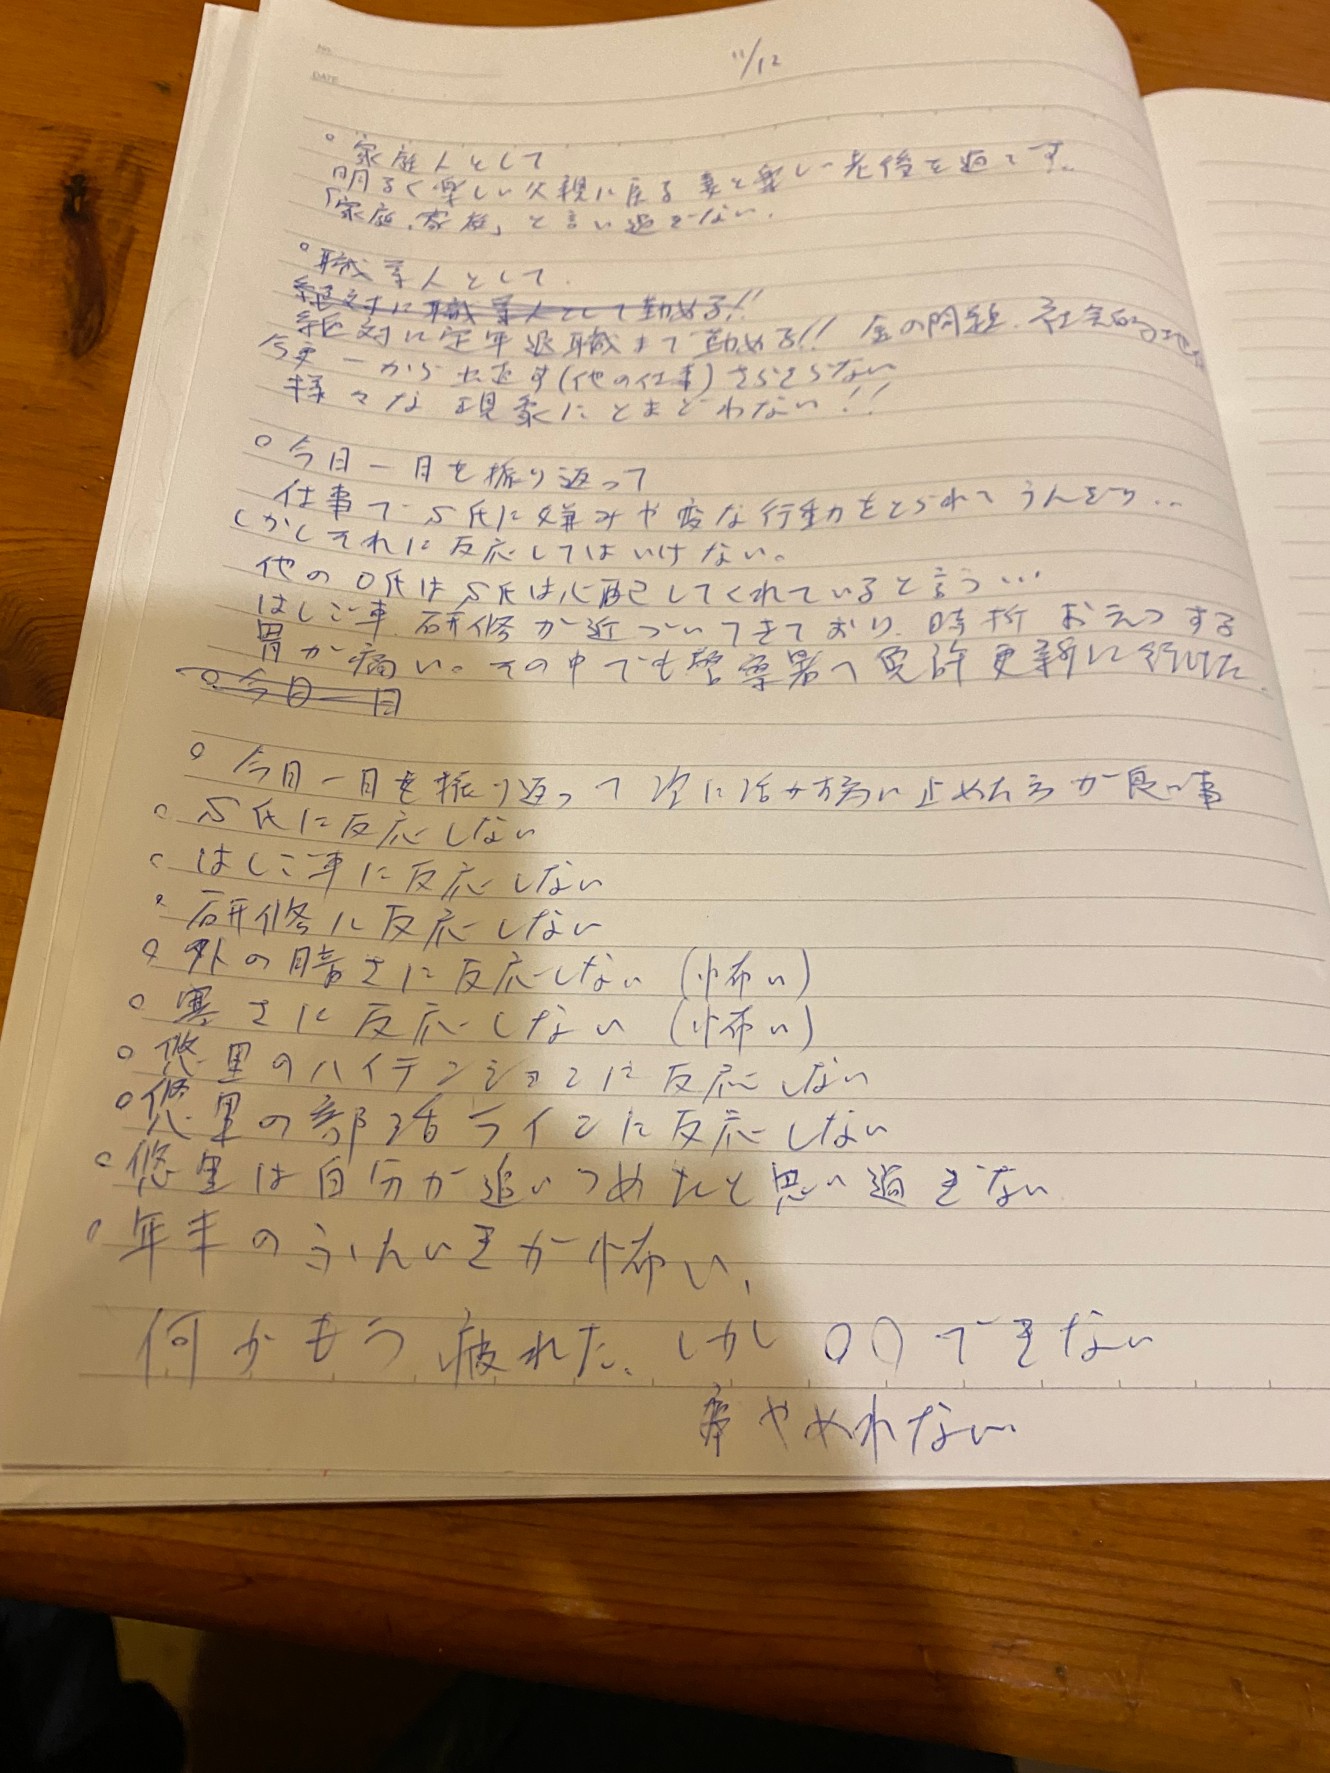 No.
DATE
11/12
○ 家庭人として
明るく楽しい父親に戻る 妻と楽しい老後を過ごす。
「家庭、家族」と言い過ぎない。
○ 職業人として
絶対に職業人として勤める!!
絶対に定年退職まで勤める!! 金の問題、社会的地位
今更一から出直す(他の仕事) さらさらない
様々な現象にとまどわない!!
○ 今日一日を振り返って
仕事でS氏に嫌みや変な行動をとられてうんざり…
しかしそれに反応してはいけない。
他のO氏はS氏は心配してくれていると言う…
はしご車、研修が近づいてきており、時折おえつする
胃が痛い。その中でも警察署へ免許更新に行けた。
○ 今日一日
○ 今日一日を振り返って 次に活かす 止めた方が良い事
○ S氏に反応しない
○ はしご車に反応しない
○ 研修に反応しない
○ 外の暗さに反応しない (怖い)
○ 寒さに反応しない (怖い)
○ 悠里のハイテンションに反応しない
○ 悠里の部活ラインに反応しない
○ 悠里は自分が追いつめたと思い過ぎない
○ 年末のふんいきが怖い、
何かもう疲れた、しかし〇〇できない
やめれない